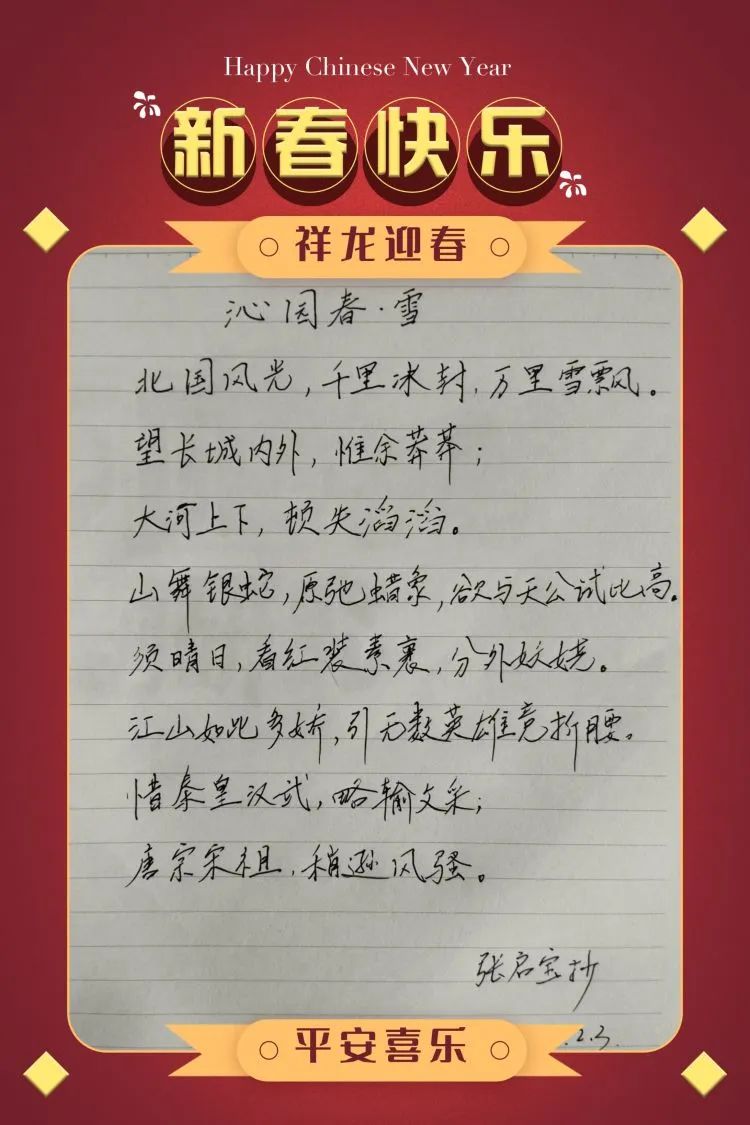 Happy Chinese New Year
新春快乐
祥龙迎春
沁园春·雪
北国风光,千里冰封,万里雪飘。
望长城内外,惟余莽莽;
大河上下,顿失滔滔。
山舞银蛇,原驰蜡象,欲与天公试比高。
须晴日,看红装素裹,分外妖娆。
江山如此多娇,引无数英雄竞折腰。
惜秦皇汉武,略输文采;
唐宗宋祖,稍逊风骚。
张启宝抄
.2.3.
平安喜乐